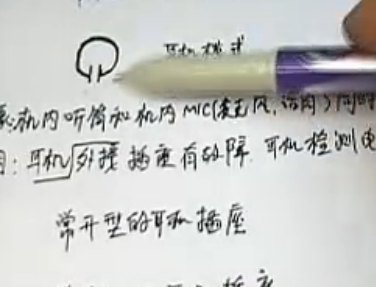 耳机模式
机内听筒和机内MIC(麦克风,话筒)同时
:耳机外接插座有故障.耳机检测电
常开型的耳机插座